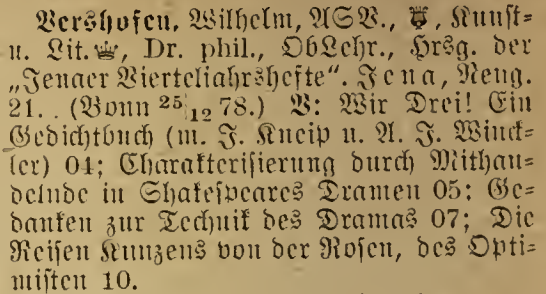 Vershofen, Wilhelm, ASV., Kunst-
u. Lit., Dr. phil., ObLehr., Hrsg. der
„Jenaer Vierteljahrshefte“. Jena, Neug.
21. (Bonn 25/12 78.) V: Wir Drei! Ein
Gedichtbuch (m. J. Kneip u. A. J. Winck-
ler) 04; Charakterisierung durch Mithan-
delnde in Shakespeares Dramen 05; Ge-
danken zur Technik des Dramas 07; Die
Reisen Kunzens von der Rosen, des Opti-
misten 10.